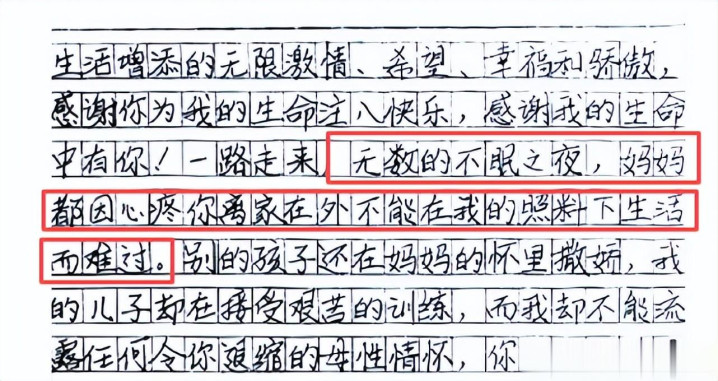 生活增添的无限激情、希望、幸福和骄傲，
感谢你为我的生命注入快乐，感谢我的生命
中有你！一路走来，无数的不眠之夜，妈妈
都因心疼你离家在外不能在我的照料下生活
而难过。别的孩子还在妈妈的怀里撒娇，我
的儿子却在接受艰苦的训练，而我却不能流
露任何令你退缩的母性情怀，你